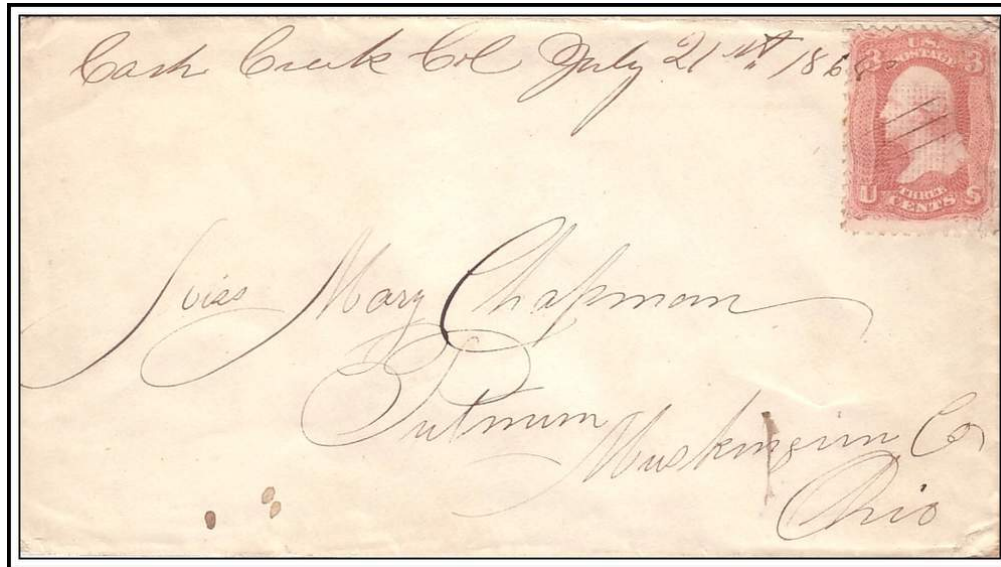 Cash Creek Col July 21st 1868
3 U.S. 3
POSTAGE
THREE
U CENTS S
Miss Mary Chapman
Putnum
Muskingum Co
Ohio